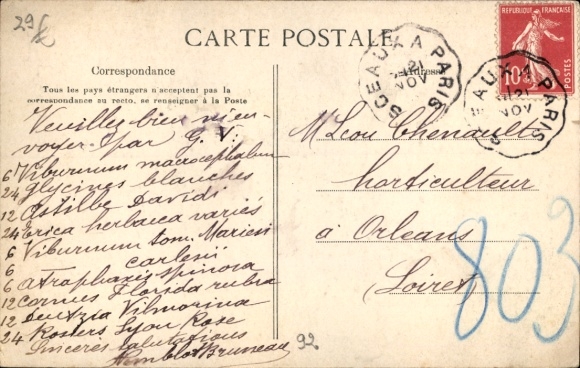 29
CARTE POSTALE
REPUBLIQUE FRANÇAISE
10c
POSTES
SCEAUX A PARIS
21
NOV
SCEAUX A PARIS
21
NOV
Correspondance
Adresse
Tous les pays étrangers n'acceptent pas la
correspondance au recto, se renseigner à la Poste
Veuillez bien m'en-
voyer par G. V.
6 Viburnum macrocephalum
24 Glycines blanches
12 Astilbe Davidi
24 Erica herbacea variés
6 Viburnum tom. Mariesi
6 carlesii
6 Atraphaxis spinosa
12 Cornus Florida rubra
12 Deutzia Vilmorinæ
24 Rosiers Lyon Rose
Sincères salutations
Nomblot Bruneau
M. Leon Chenault
horticulteur
à Orleans
Loiret
803
92